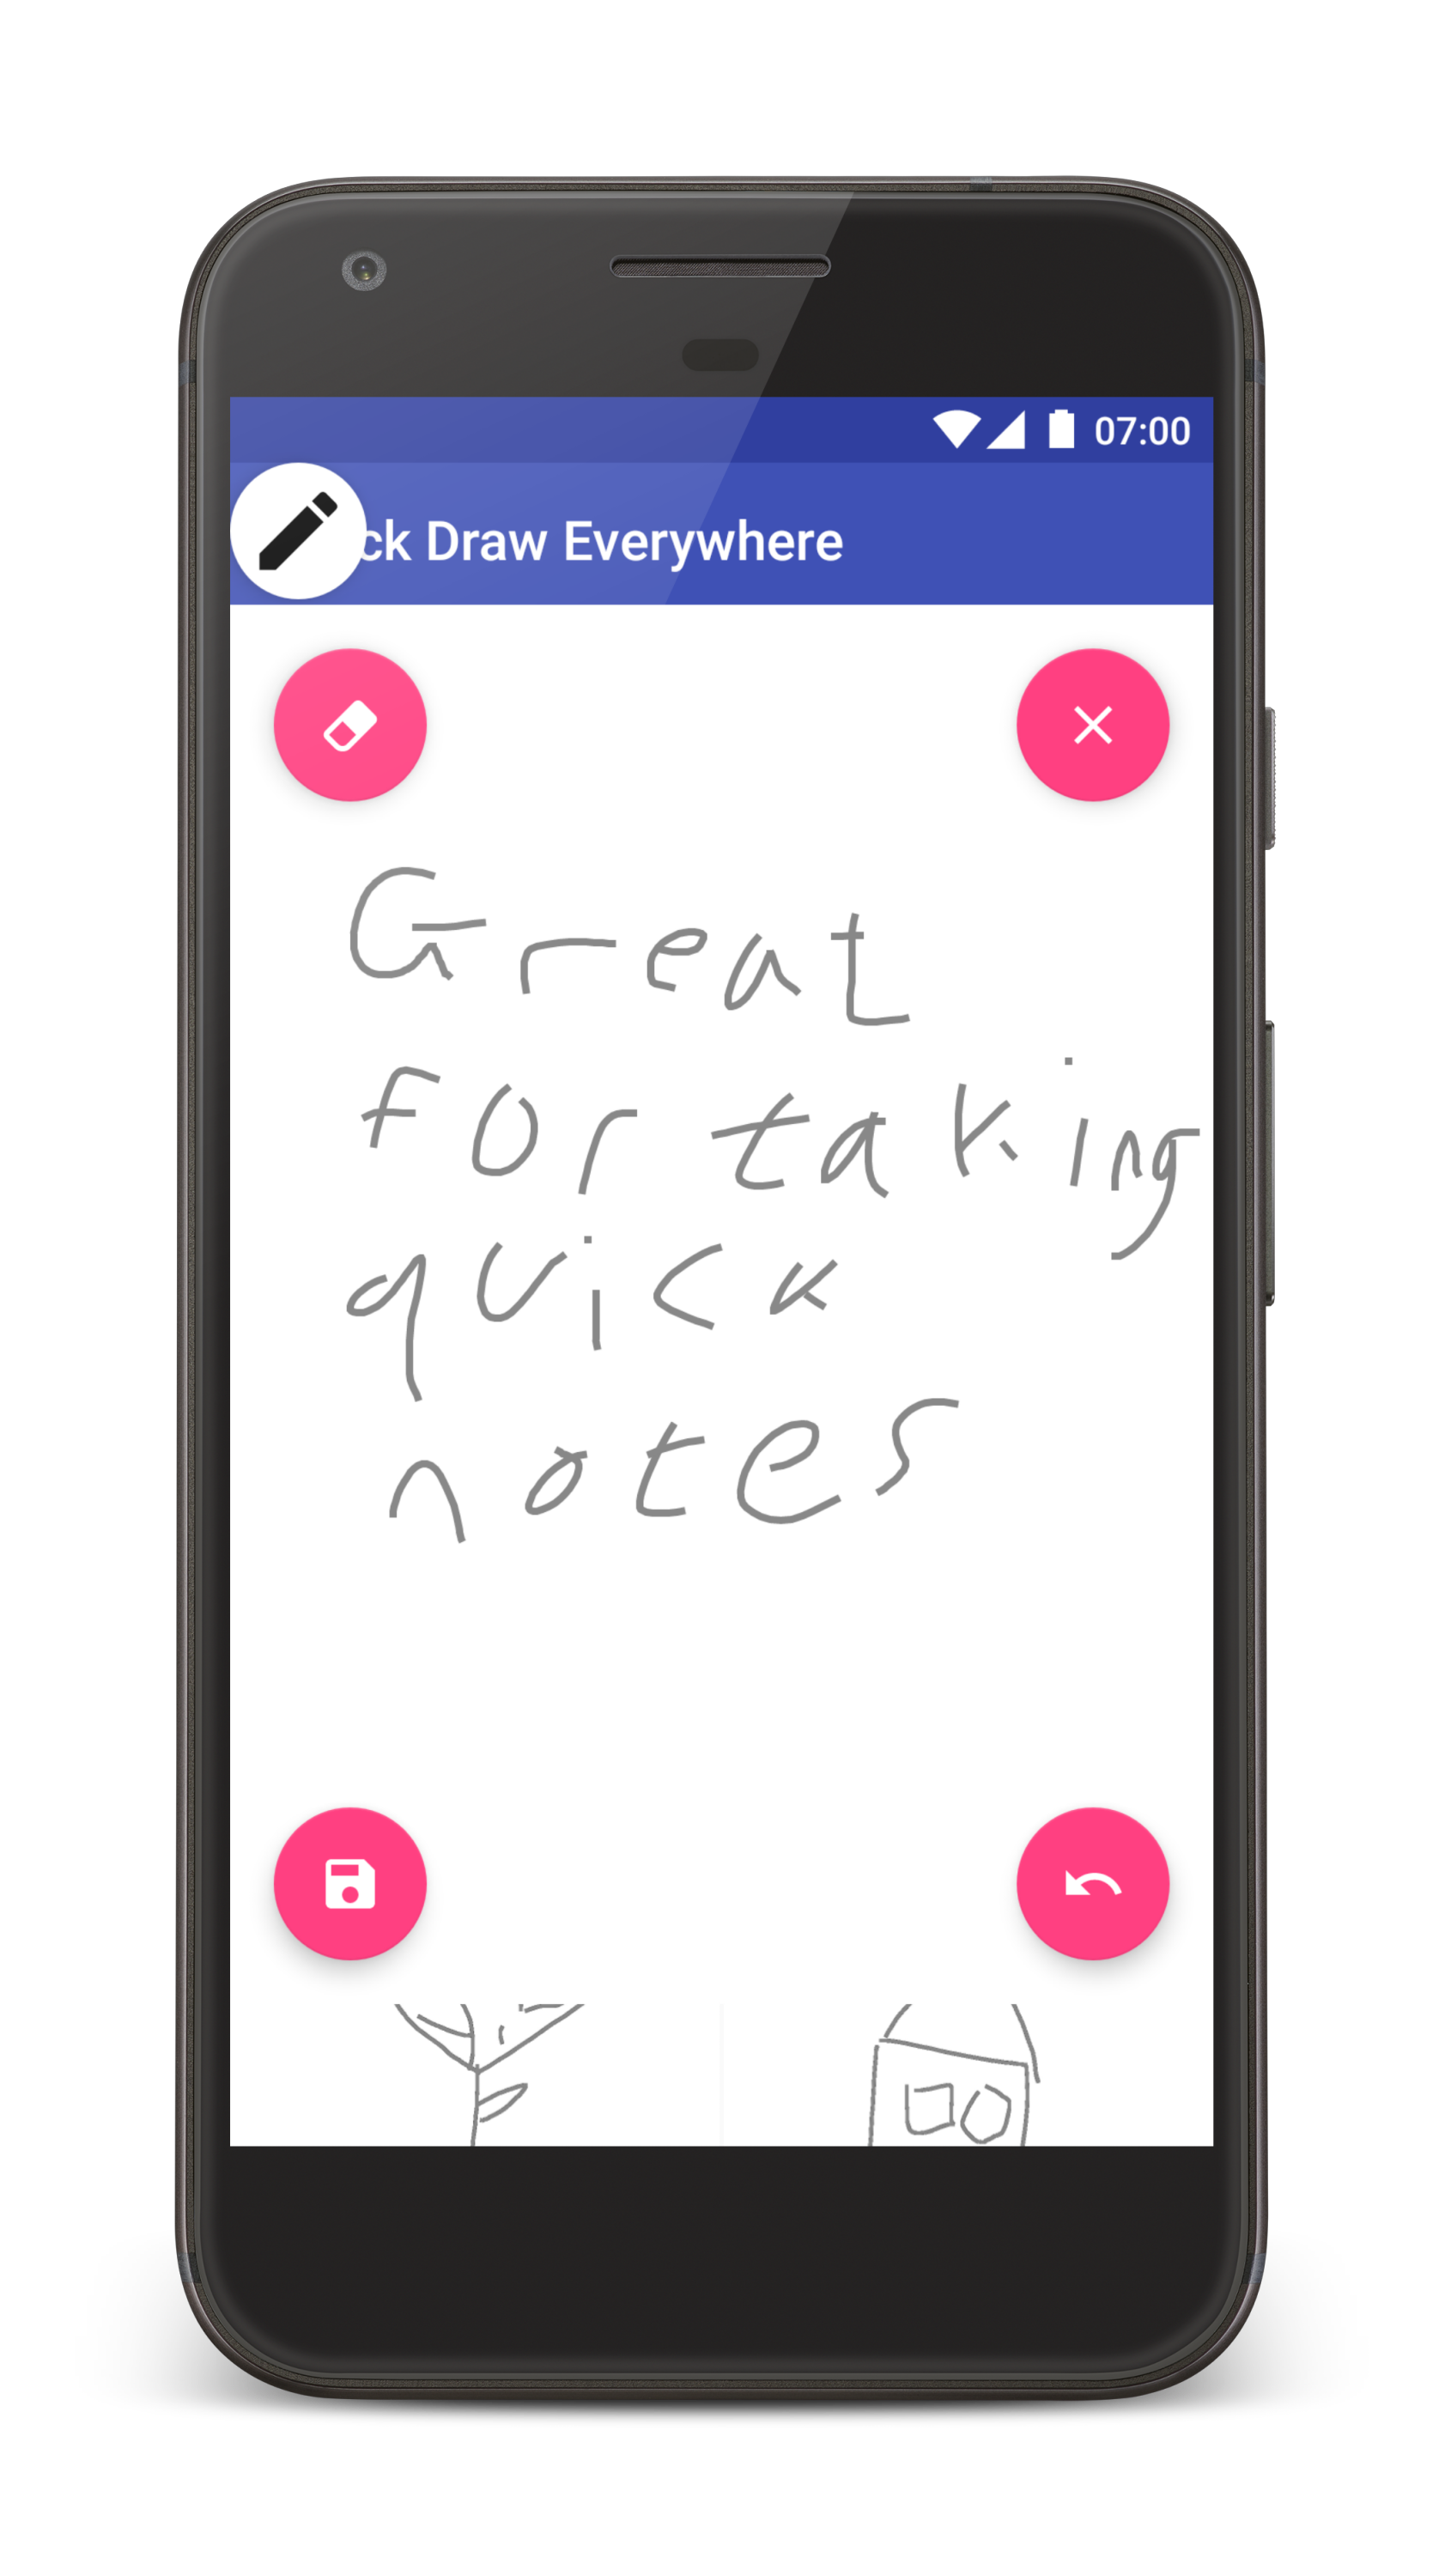 07:00
ck Draw Everywhere
Great
for taking
quick
notes